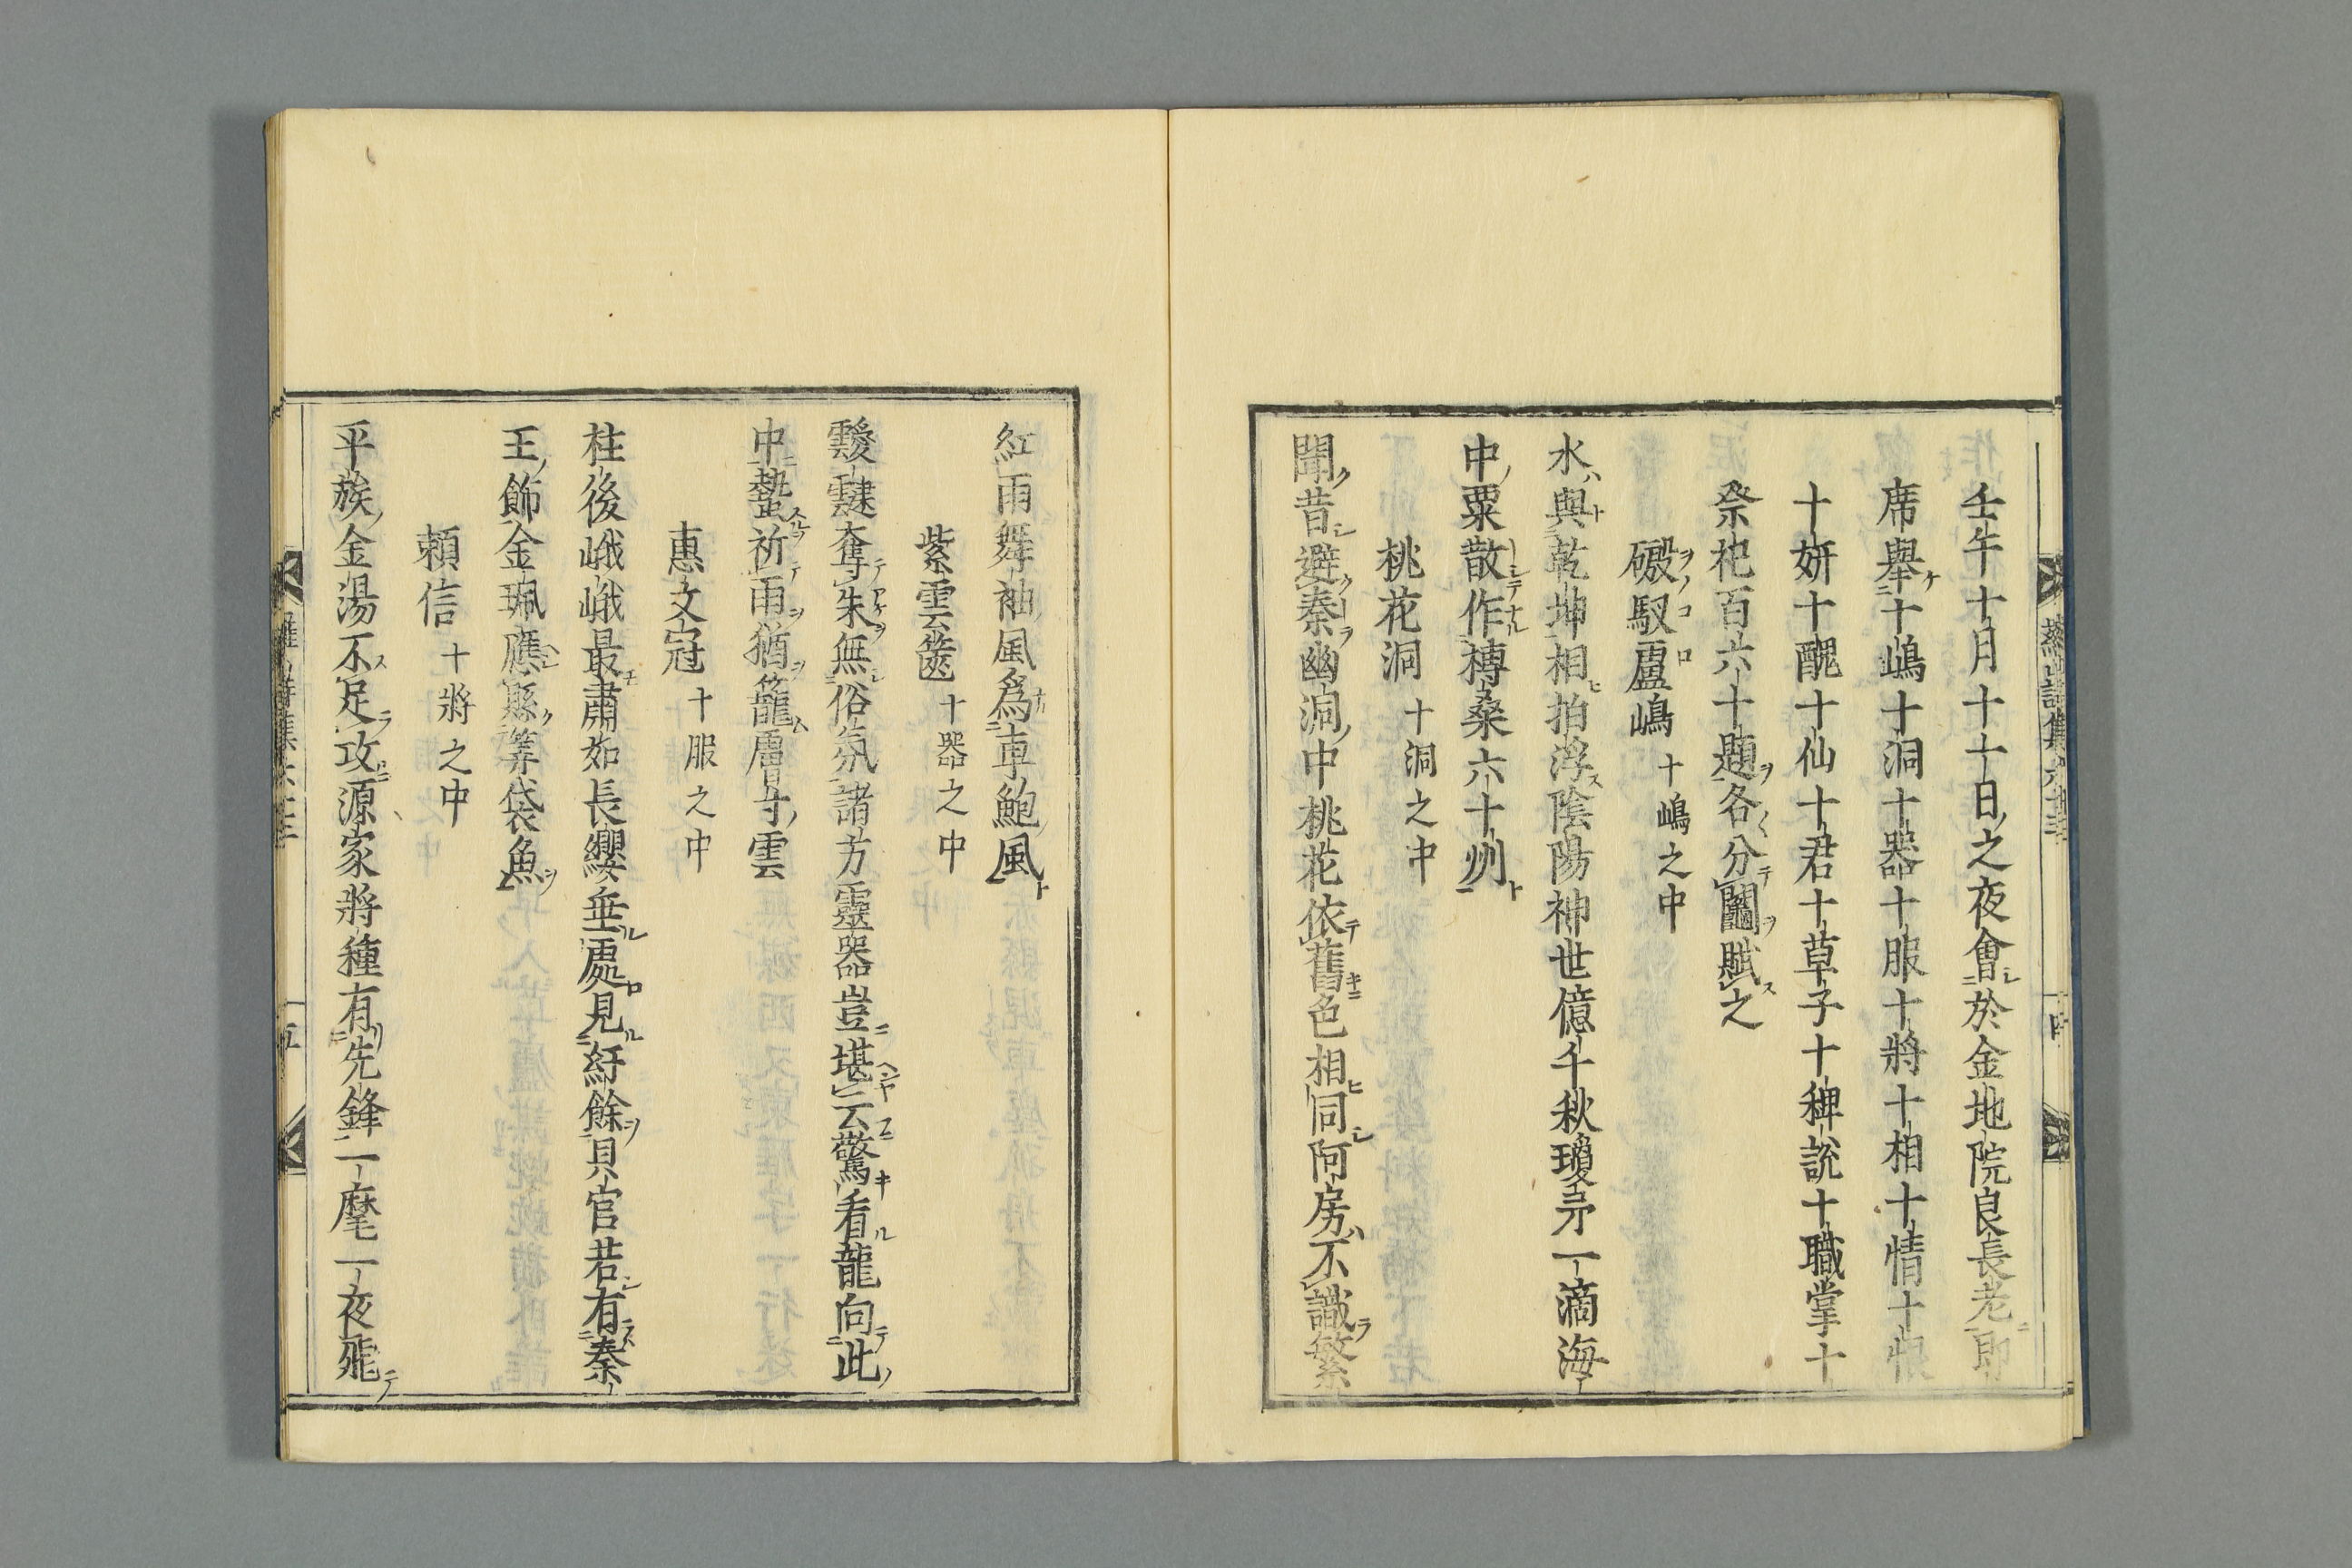 壬午十月十十日之夜會於金地院良長老即
席舉十嶋十洞十器十服十將十相十情十
十妍十醜十仙十君十草子十稗說十職掌十
祭祀百六十題各分鬮賦之
磤馭盧嶋 十嶋之中
水與乾坤相拍浮陰陽神世億千秋瓊矛一滴海
中粟散作榑桑六十州
桃花洞 十洞之中
聞昔避秦幽洞中桃花依舊色相同阿房不識繁
紅雨舞袖風爲車鮑風
紫雲篋 十器之中
靉靆奪朱無俗氛諸方靈器豈堪云驚看龍向此
中蟄祈雨猶籠膚寸雲
惠文冠 十服之中
柱後峨峨最肅如長纓垂處見紆餘具官若有秦
王飾金珮應懸等袋魚
賴信 十將之中
平族金湯不足攻源家將種有先鋒一麾一夜飛